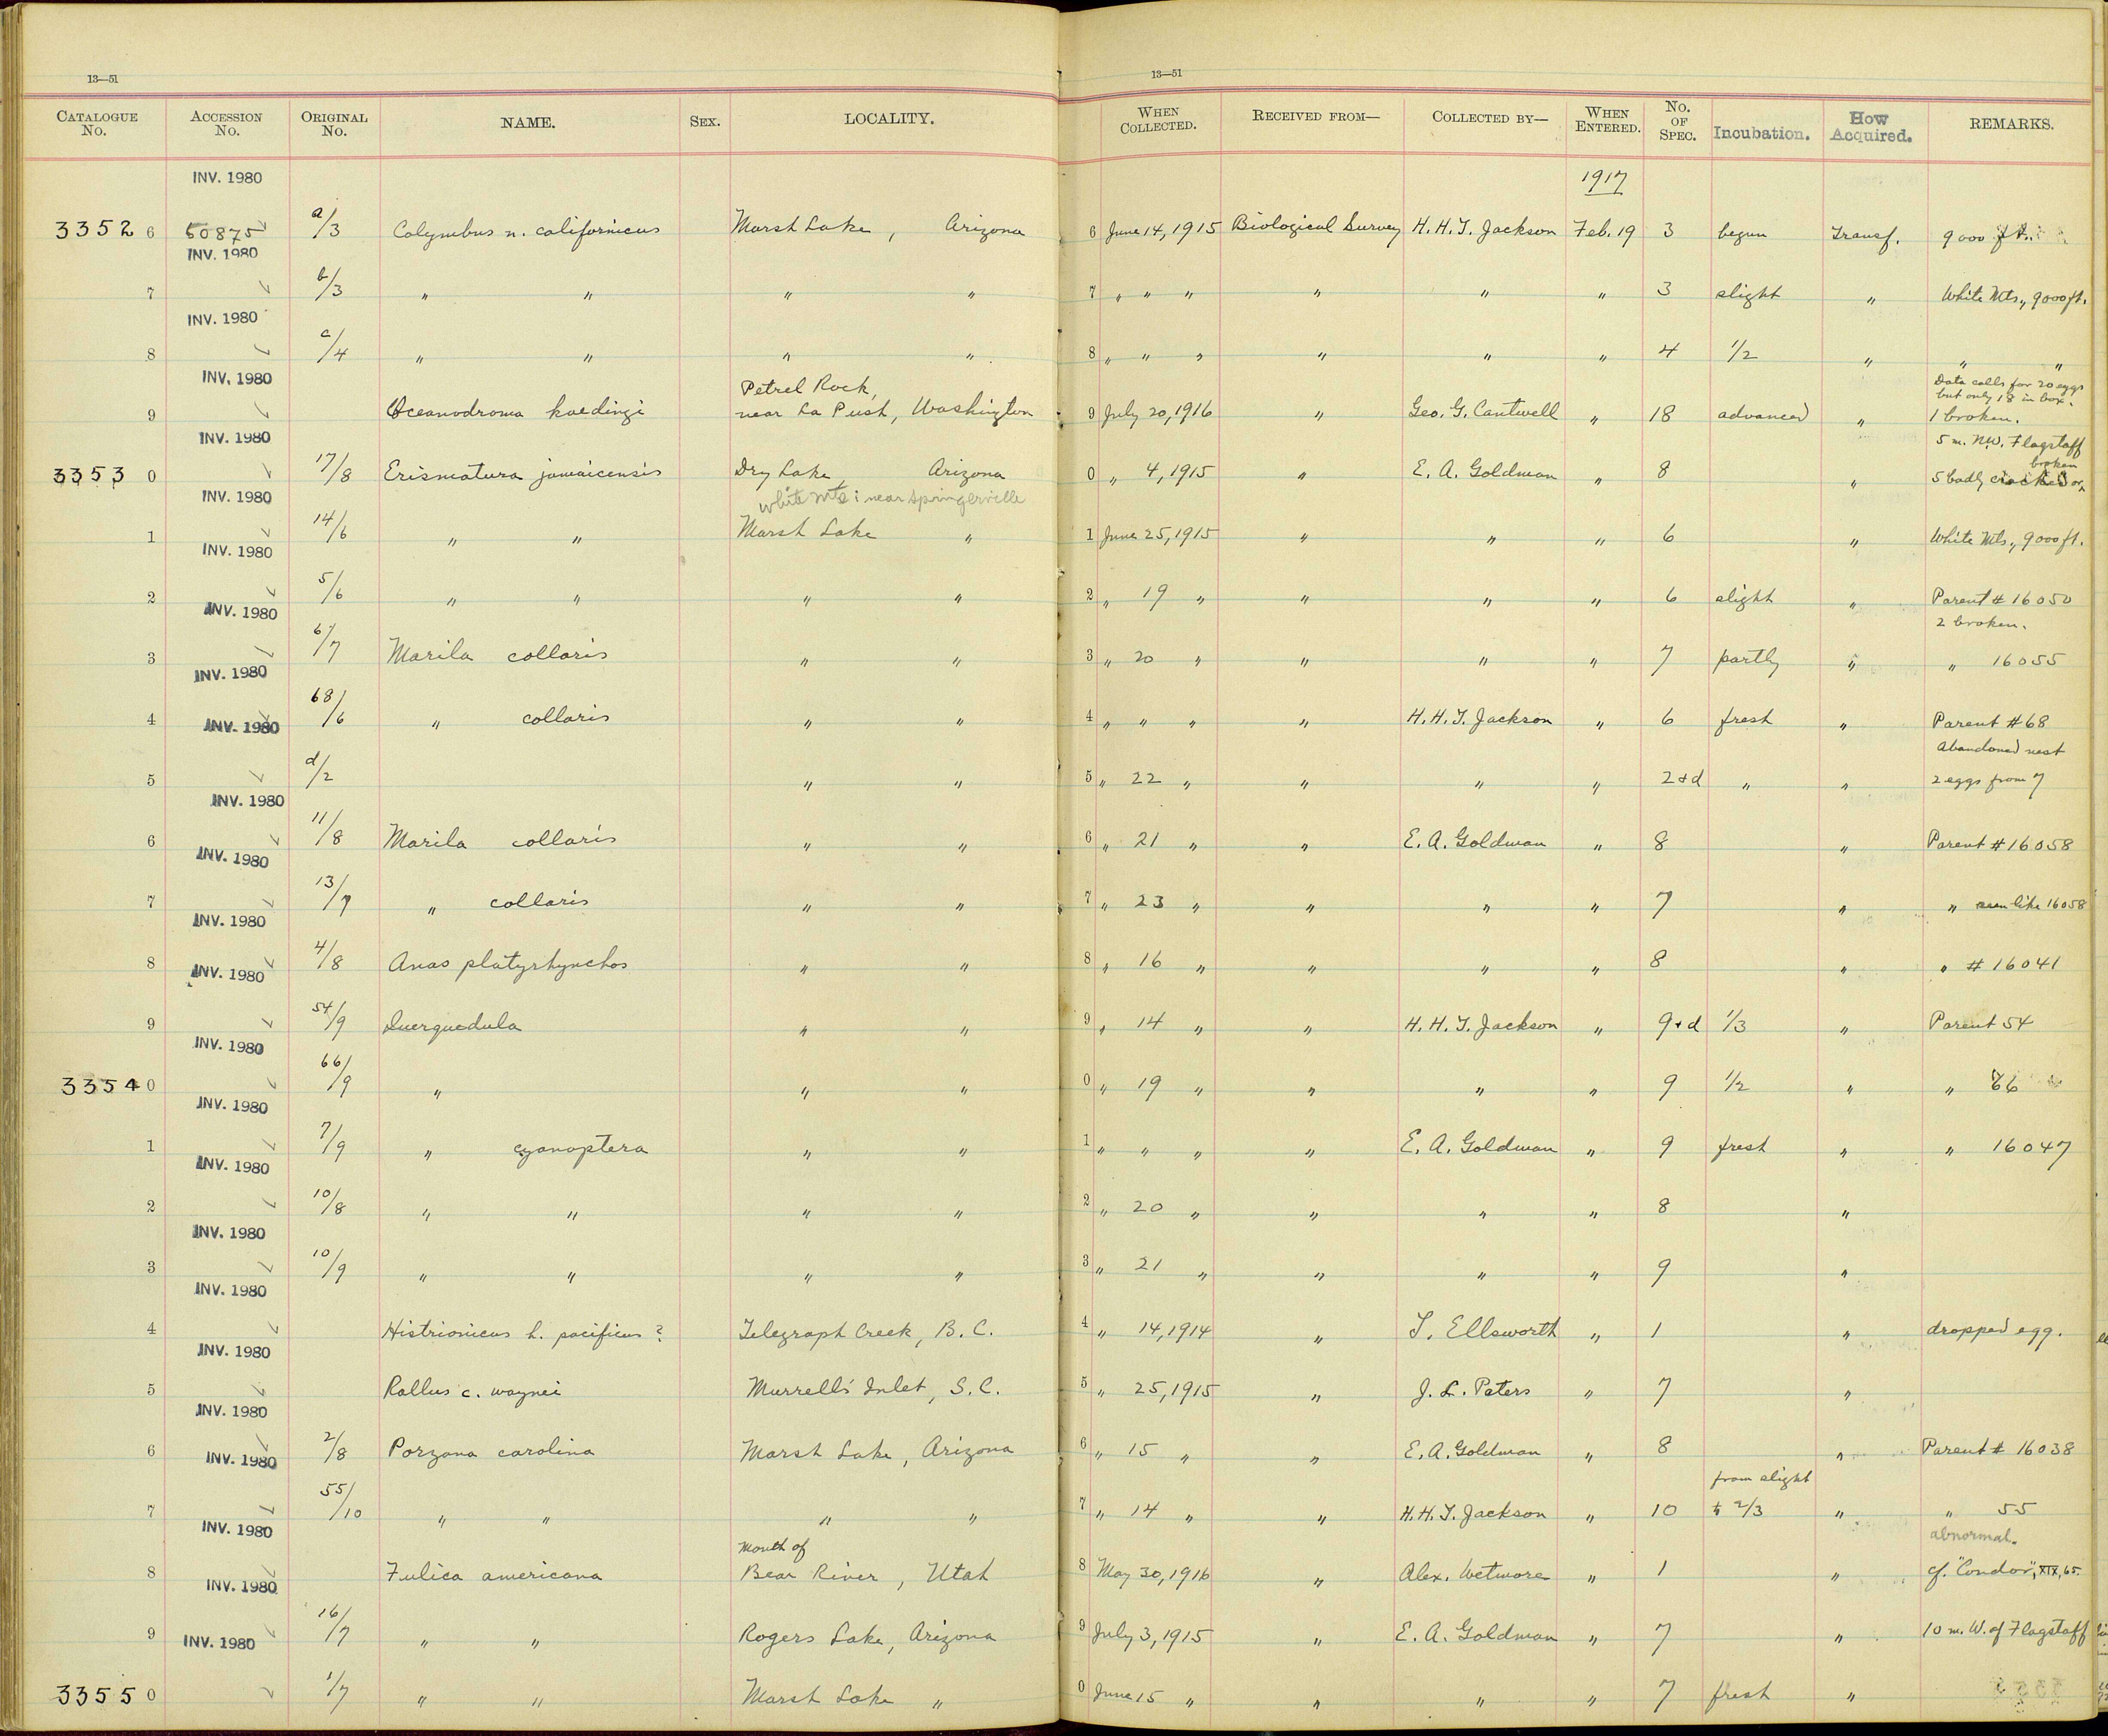 13—51 13—51
CATALOGUE No. ACCESSION No. ORIGINAL No. NAME. SEX. LOCALITY. WHEN COLLECTED. RECEIVED FROM— COLLECTED BY— WHEN ENTERED. No. OF SPEC. Incubation. How Acquired. REMARKS.
INV. 1980 1917
33526 50875 a/3 Colymbus n. californicus Marsh Lake, Arizona 6 June 14, 1915 Biological Survey H. H. T. Jackson Feb. 19 3 begun Transf. 9000 ft.
INV. 1980
7 b/3 " " " " 7 " " " " " " 3 slight " White Mts., 9000 ft.
INV. 1980
8 c/4 " " " " 8 " " " " " " 4 1/2 " " "
INV. 1980 Petrel Rock, Data calls for 20 eggs
but only 18 in box.
9 Oceanodroma kaedingi near La Push, Washington 9 July 20, 1916 " Geo. G. Cantwell " 18 advanced " 1 broken.
INV. 1980 5 m. NW. Flagstaff
broken
33530 17/8 Erismatura jamaicensis Dry Lake Arizona 0 " 4, 1915 " E. A. Goldman " 8 " 5 badly cracked or
INV. 1980 White Mts: near Springerville
1 14/6 " " Marsh Lake " 1 June 25, 1915 " " " 6 " White Mts., 9000 ft.
INV. 1980
2 5/6 " " " " 2 " 19 " " " " 6 slight " Parent # 16050
INV. 1980 2 broken.
3 6/7 Marila collaris " " 3 " 20 " " " " 7 partly " " 16055
INV. 1980
4 68/6 " collaris " " 4 " " " " H. H. T. Jackson " 6 fresh " Parent #68
INV. 1980 Abandoned nest
5 d/2 " " 5 " 22 " " " " 2+d " " 2 eggs from 7
INV. 1980
6 11/8 Marila collaris " " 6 " 21 " " E. A. Goldman " 8 " Parent #16058
INV. 1980
7 13/7 " collaris " " 7 " 23 " " " " 7 " " seen like 16058
INV. 1980
8 4/8 Anas platyrhynchos " " 8 " 16 " " " " 8 " " # 16041
INV. 1980
9 54/9 Querquedula " " 9 " 14 " " H. H. T. Jackson " 9+d 1/3 " Parent 54
INV. 1980
33540 66/9 " " " 0 " 19 " " " " 9 1/2 " " 66
INV. 1980
1 7/9 " cyanoptera " " 1 " " " " E. A. Goldman " 9 fresh " " 16047
INV. 1980
2 10/8 " " " " 2 " 20 " " " " 8 "
INV. 1980
3 10/9 " " " " 3 " 21 " " " " 9 "
INV. 1980
4 Histrionicus h. pacificus ? Telegraph Creek, B. C. 4 " 14, 1914 " T. Ellsworth " 1 " dropped egg.
INV. 1980
5 Rallus c. waynei Murrells' Inlet, S. C. 5 " 25, 1915 " J. L. Peters " 7 "
INV. 1980
6 2/8 Porzana carolina Marsh Lake, Arizona 6 " 15 " " E. A. Goldman " 8 " Parent # 16038
INV. 1980 from slight
7 55/10 " " " " 7 " 14 " " H. H. T. Jackson " 10 to 2/3 " " 55
INV. 1980 Mouth of abnormal.
8 Fulica americana Bear River, Utah 8 May 30, 1916 " Alex. Wetmore " 1 " cf. "Condor", XIX, 65.
INV. 1980
9 16/7 " " Rogers Lake, Arizona 9 July 3, 1915 " E. A. Goldman " 7 " 10 m. W. of Flagstaff
INV. 1980
33550 1/7 " " Marsh Lake " 0 June 15 " " " " 7 fresh "